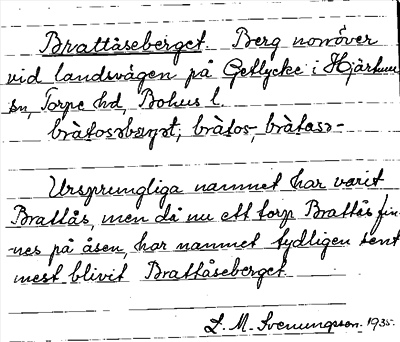 Brattåseberget. Berg norröver
vid landsvägen på Getlycke i Hjärtum
sn, Torpe hd, Bohus l.
bràtosəbærjət; bràtos-, bràtosə-
Ursprungliga namnet har varit
Brattås, men då nu ett torp Brattås fin-
nes på åsen, har namnet tydligen sent
mest blivit Brattåseberget.
L. M. Svenungsson. 1935.